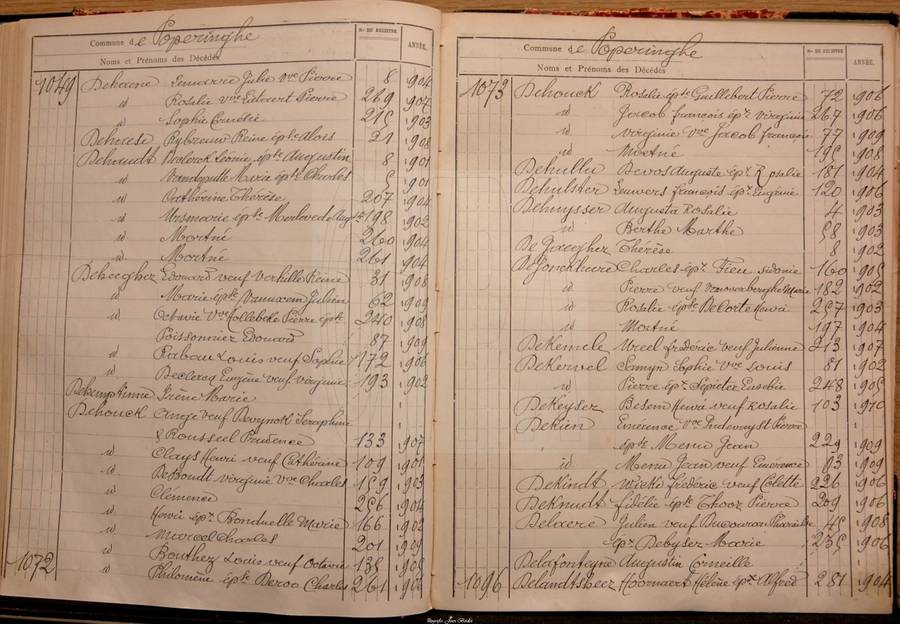 Commune de Poperinghe
Noms et Prénoms des Décédés
Nº DU REGISTRE
ANNÉE.
1049 Dehaene Lemarie Julie Vve Pierre 8 1904
id Rosalie Vve Pierre 269 1907
id Sophie Cornélie 215 1903
Dehaese Reine épse Aloïs 21 1908
Dehaudt Léonie, épse Augustin 8 1901
id Vandeputte Marie épse Charles 5 1901
id Cathérine Thérèse 207 1904
id Ursmarie épse 198 1902
id Mortné 260 1904
id Mortné 261 1904
Edouard veuf Verhille Reine 31 1908
id Marie épse Julien 62 1909
id Octavie Vve Hollebeke Pierre épse 240 1908
Poissonnier Edouard 87 1909
id Rabau Louis veuf Sophie 172 1906
id Declercq Eugène veuf Virginie 193 1902
Dehemptinne Irène Marie
Dehouck Ange veuf Devynck Séraphine
& Rousseel Prudence 133 1907
id Clays Henri veuf Cathérine 109 1901
id DeBoudt Virginie Vve Charles 159 1903
id Clémence 256 1904
id Henri épx Bonduelle Marie 166 1902
id Marcel Charles 201 1909
id Bouthez Louis veuf Octavie 135 1908
1072 id Philomène épse Deroo Charles 261
Commune de Poperinghe
Noms et Prénoms des Décédés
Nº DU REGISTRE
ANNÉE.
1073 Dehouck Rosalie épse Guillebert Pierre 72 1906
id Jacob françois épx Virginie 267 1906
id Virginie Vve Jacob françois 77 1909
id Mortné 195 1908
Dehullu Devos Auguste épx Rosalie 181 1904
Dehulster Lauwers françois épx Eugénie 120 1906
Augusta Rosalie 4 1903
id Berthe Marthe 58 1903
Thérèse 8 1902
DeJonckheere Charles épx Fieu Sidonie 160 1905
id Pierre veuf Marie 182 1902
id Rosalie épse DeCorte Henri 257 1903
id Mortné 197 1904
Dekemele veuf Julienne 213 1907
Dekervel Samyn Sophie Vve Louis 81 1902
id Pierre épx Eusebie 248 1905
DeKeyser Besem Henri veuf Rosalie 103 1910
Dekien Emérence Vve Pierre
épse Menu Jean 229 1909
id Menu Jean veuf Emérence 93 1909
DeKindt Wicke fréderic veuf Colette 226 1906
Deknudt fidélie épse Thoor Pierre 209 1906
Delaere Julien veuf 45 1908
épx Debyser Marie 235 1906
Delafonteyne Augustin Corneille
1096 Delandtsheer Hoornaert Hélène épx Alfred 281 1904